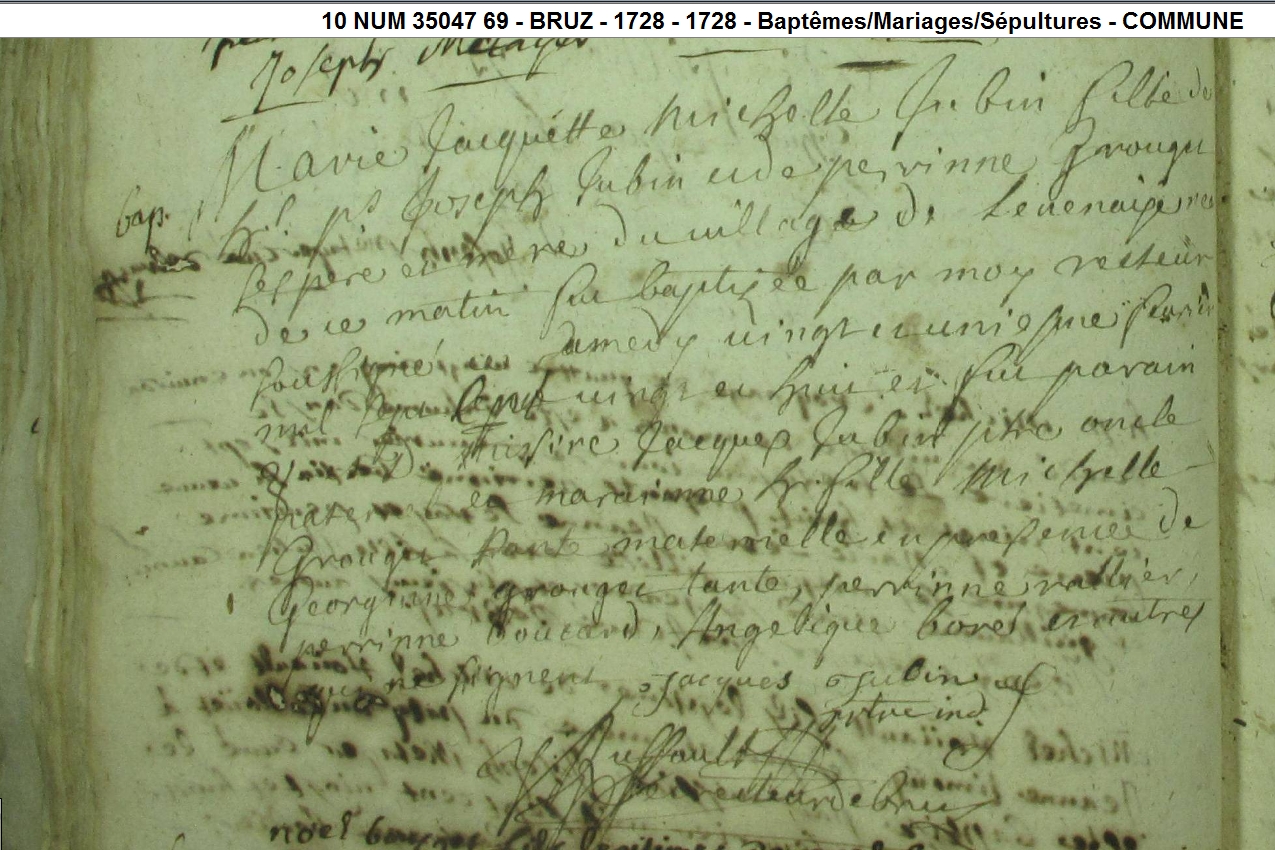 10 NUM 35047 69 - BRUZ - 1728 - 1728 - Baptêmes/Mariages/Sépultures - COMMUNE
Joseph Metayer
Marie Jacquette Michelle Jubin fille de
bap.
Joseph Jubin et de perrinne Grouget
ses pere et mere du village de
de ce matin fut baptizée par moy recteur
soussigné samedy vingt et uniesme fevrier
mil sept cent vingt et huit et fut parain
missire Jacques Jubin ptre oncle
paternel et marainne h. fille Michelle
Grouget tante maternelle en presence de
Georginne grouget tante, perrinne
perrinne Boucard, Angelique borel et autres
qui ne signent Jacques Jubin
ptre
Ruffault
recteur de bruz
noel